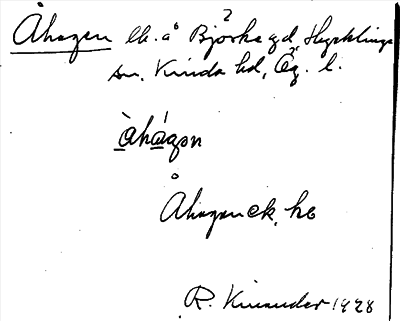 Åhagen lk. å Björka gd, Hycklinge
sn. Kinda hd, Ög. l.
àhágən
Åhagen ek, he
R. Kinander 1928